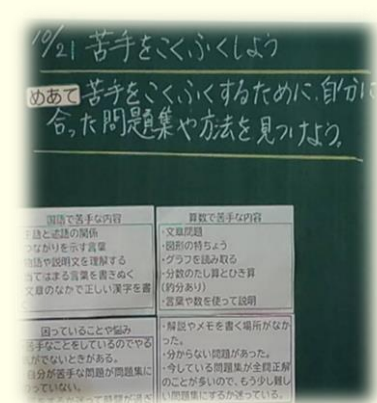 10/21 苦手をこくふくしよう
めあて 苦手をこくふくするために、自分に
合った問題集や方法を見つけよう。
国語で苦手な内容
語と述語の関係
つながりを示す言葉
物語や説明文を理解する
てはまる言葉を書きぬく
文章のなかで正しい漢字を書
算数で苦手な内容
・文章問題
・図形の特ちょう
・グラフを読み取る
・分数のたし算とひき算
(約分あり)
・言葉や数を使って説明
困っていることや悩み
苦手なことをしているのでやる
がでないときがある。
自分が苦手な問題が問題集に
っていない。
・解説やメモを書く場所がなか
った。
・分からない問題があった。
・今している問題集が全問正解
のことが多いので、もう少し難し
い問題集にするか迷っている。